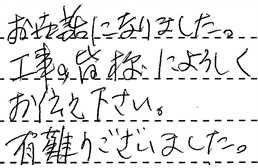 お世話になりました。
工事の皆様によろしく
お伝え下さい。
有難うございました。